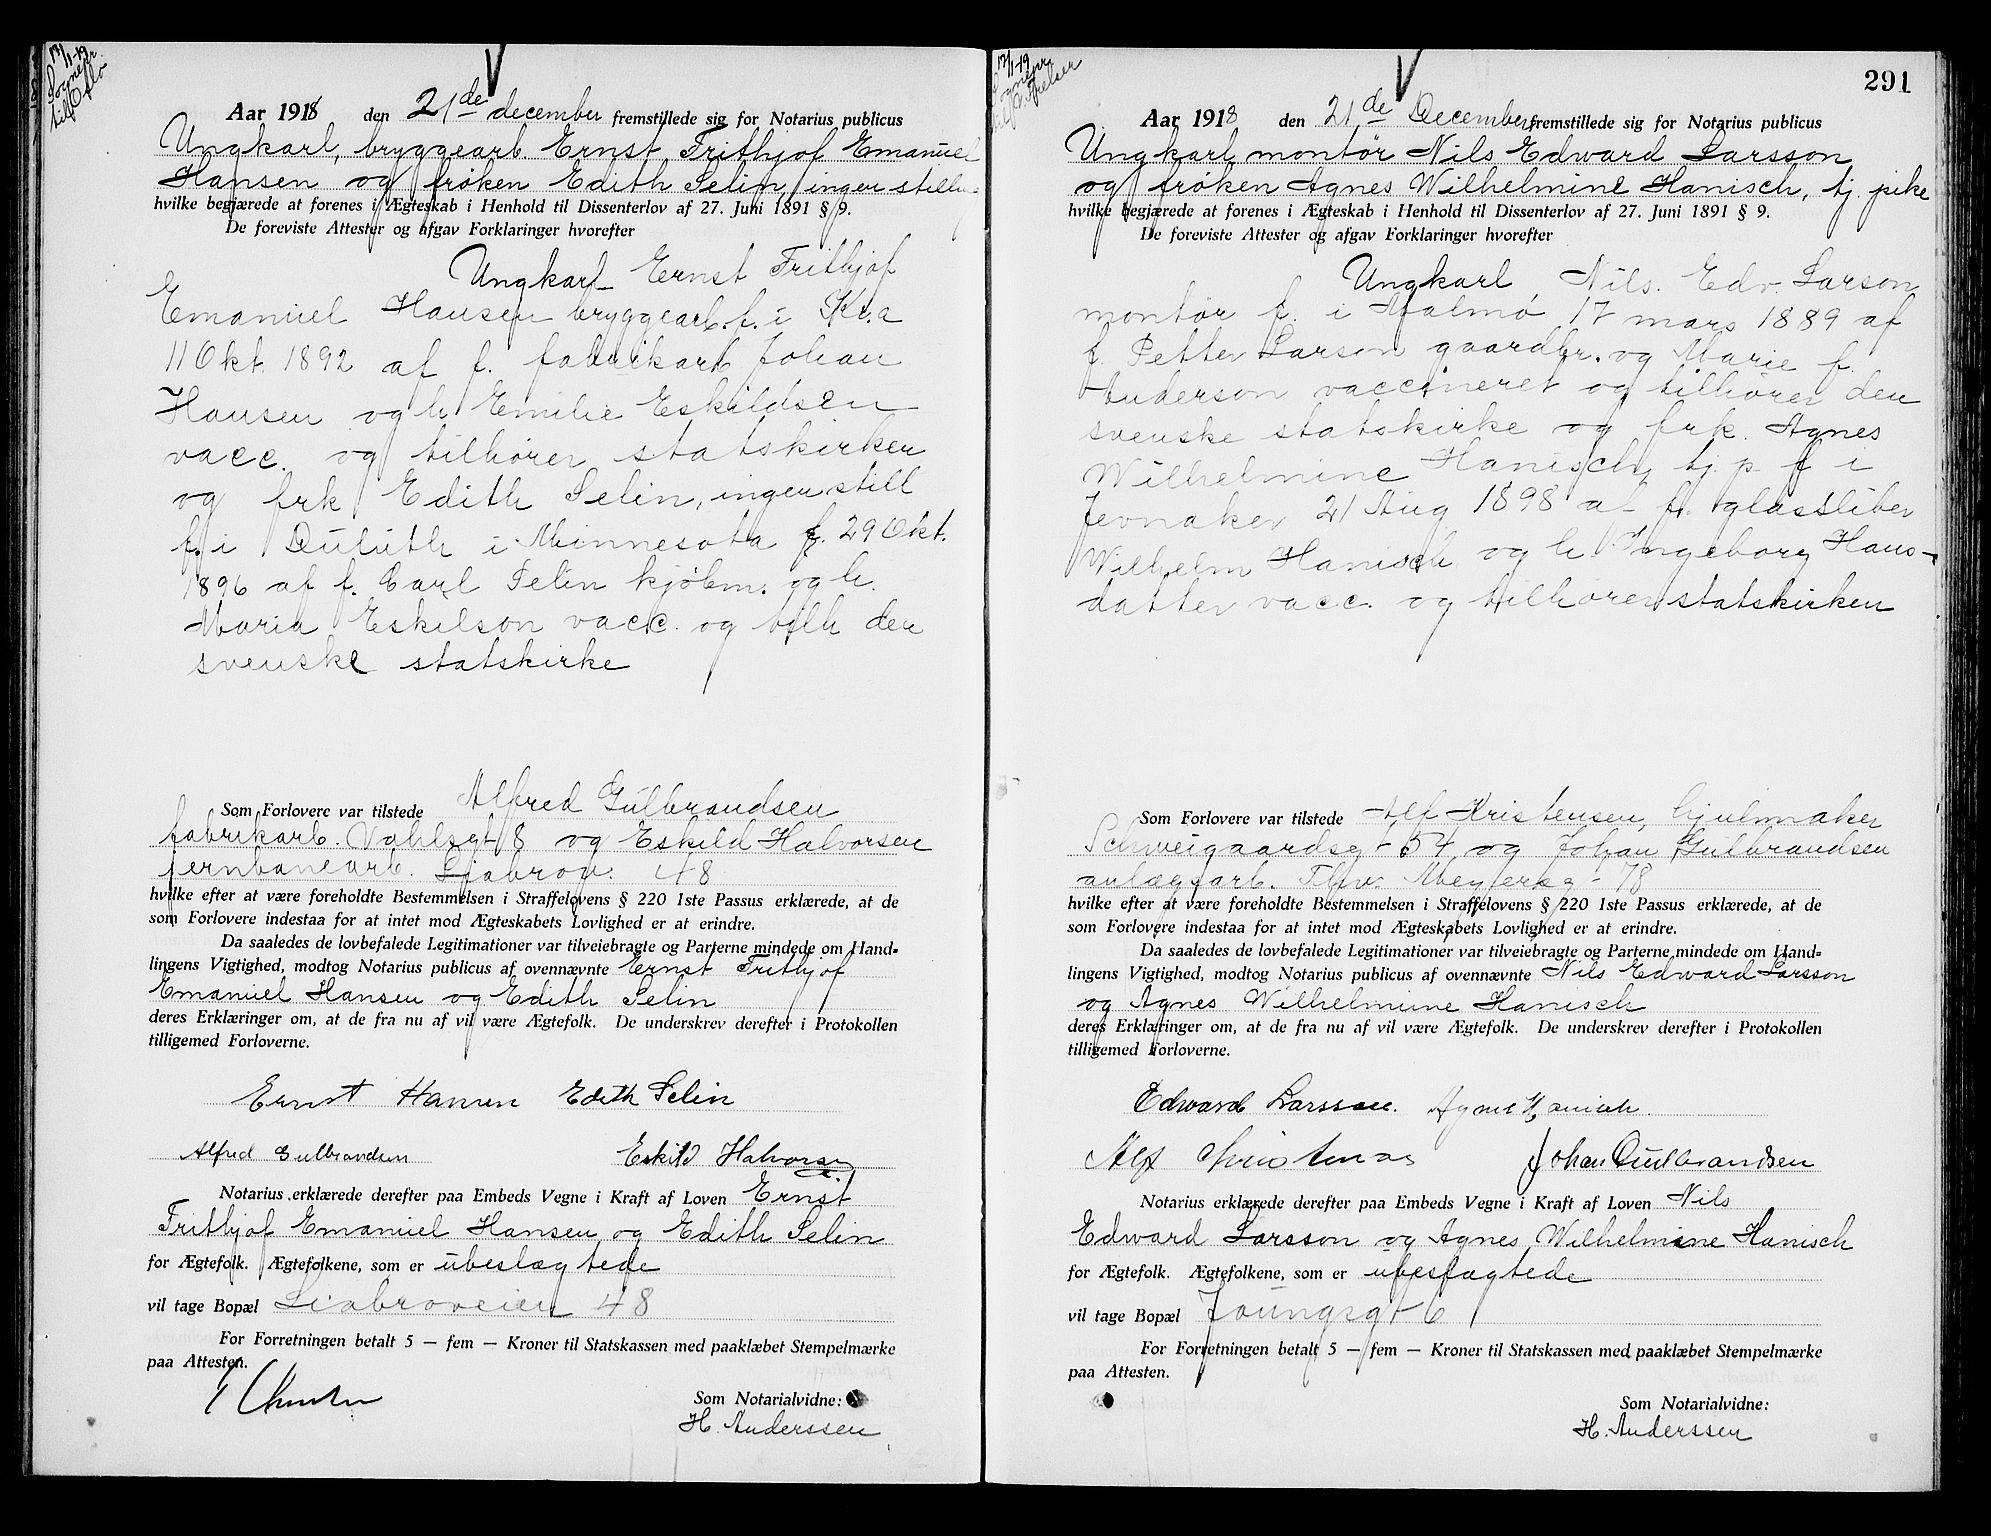 13/1-19
Sognepr.
til Oslo
Aar 1918 den 21de december fremstillede sig for Notarius publicus
Ungkarl, bryggearb. Ernst Frithjof Emanuel
Hansen og frøken Edith Selin, ingen stilln.
hvilke begjærede at forenes i Ægteskab i Henhold til Dissenterlov af 27. Juni 1891 § 9.
De foreviste Attester og afgav Forklaringer hvorefter
Ungkarl Ernst Frithjof
Emanuel Hansen bryggearb. f. i Kr.a
11 Okt. 1892 af f. fabrikarb Johan
Hansen og h. Emilie Eskildsen
vacc. og tilhører statskirken
og frk Edith Selin, ingen still
f. i Duluth i Minnesota f. 29 Okt.
1896 af f. Carl Selin kjøbm. og h.
Maria Eskilson vacc. og tilh den
svenske statskirke
Som Forlovere var tilstede Alfred Gulbrandsen
fabrikarb. Vahlsgt 8 og Eskild Halvorsen
jernbanearb. Ljabrov. 48
hvilke efter at være foreholdte Bestemmelsen i Straffelovens § 220 1ste Passus erklærede, at de
som Forlovere indestaa for at intet mod Ægteskabets Lovlighed er at erindre.
Da saaledes de lovbefalede Legitimationer var tilveiebragte og Parterne mindede om Hand-
lingens Vigtighed, modtog Notarius publicus af ovennævnte Ernst Frithjof
Emanuel Hansen og Edith Selin
deres Erklæringer om, at de fra nu af vil være Ægtefolk. De underskrev derefter i Protokollen
tilligemed Forloverne.
Ernst Hansen Edith Selin
Alfred Gulbrandsen Eskild Halvorsen
Notarius erklærede derefter paa Embeds Vegne i Kraft af Loven Ernst
Frithjof Emanuel Hansen og Edith Selin
for Ægtefolk. Ægtefolkene, som er ubeslægtede
vil tage Bopæl Liabroveien 48
For Forretningen betalt 5 — fem — Kroner til Statskassen med paaklæbet Stempelmærke
paa Attesten.
Som Notarialvidne:
H. Anderssen
13/1-19
291
Aar 1918 den 21de December fremstillede sig for Notarius publicus
Ungkarl montør Nils Edward Larsson
og frøken Agnes Wilhelmine Hanisch, tj. pike
hvilke begjærede at forenes i Ægteskab i Henhold til Dissenterlov af 27. Juni 1891 § 9.
De foreviste Attester og afgav Forklaringer hvorefter
Ungkarl Nils. Edv. Larson
montør f. i Malmø 17 mars 1889 af
f. Petter Larson gaardbr. og Marie f.
Anderson vaccineret og tilhører den
svenske statskirke og frk. Agnes
Wilhelmine Hanisch, tj. p. f i
Jevnaker 21 Aug 1898 af f. glassliber
Wilhelm Hanisch og h Ingeborg Hans-
datter vacc. og tilhører statskirken
Som Forlovere var tilstede Alf Kristensen, hjulmaker
Schweigaardsgt 54 og Johan Gulbrandsen
anlægsarb. Thv. Meyersgt 78
hvilke efter at være foreholdte Bestemmelsen i Straffelovens § 220 1ste Passus erklærede, at de
som Forlovere indestaa for at intet mod Ægteskabets Lovlighed er at erindre.
Da saaledes de lovbefalede Legitimationer var tilveiebragte og Parterne mindede om Hand-
lingens Vigtighed, modtog Notarius publicus af ovennævnte Nils Edward Larsson
og Agnes Wilhelmine Hanisch
deres Erklæringer om, at de fra nu af vil være Ægtefolk. De underskrev derefter i Protokollen
tilligemed Forloverne.
Edward Larsson. Agnes Hanisch.
Alf Christensen Johan Gulbrandsen
Notarius erklærede derefter paa Embeds Vegne i Kraft af Loven Nils
Edward Larsson og Agnes Wilhelmine Hanisch
for Ægtefolk. Ægtefolkene, som er ubeslægtede
vil tage Bopæl Youngsgt 6
For Forretningen betalt 5 — fem — Kroner til Statskassen med paaklæbet Stempelmærke
paa Attesten.
Som Notarialvidne:
H. Anderssen